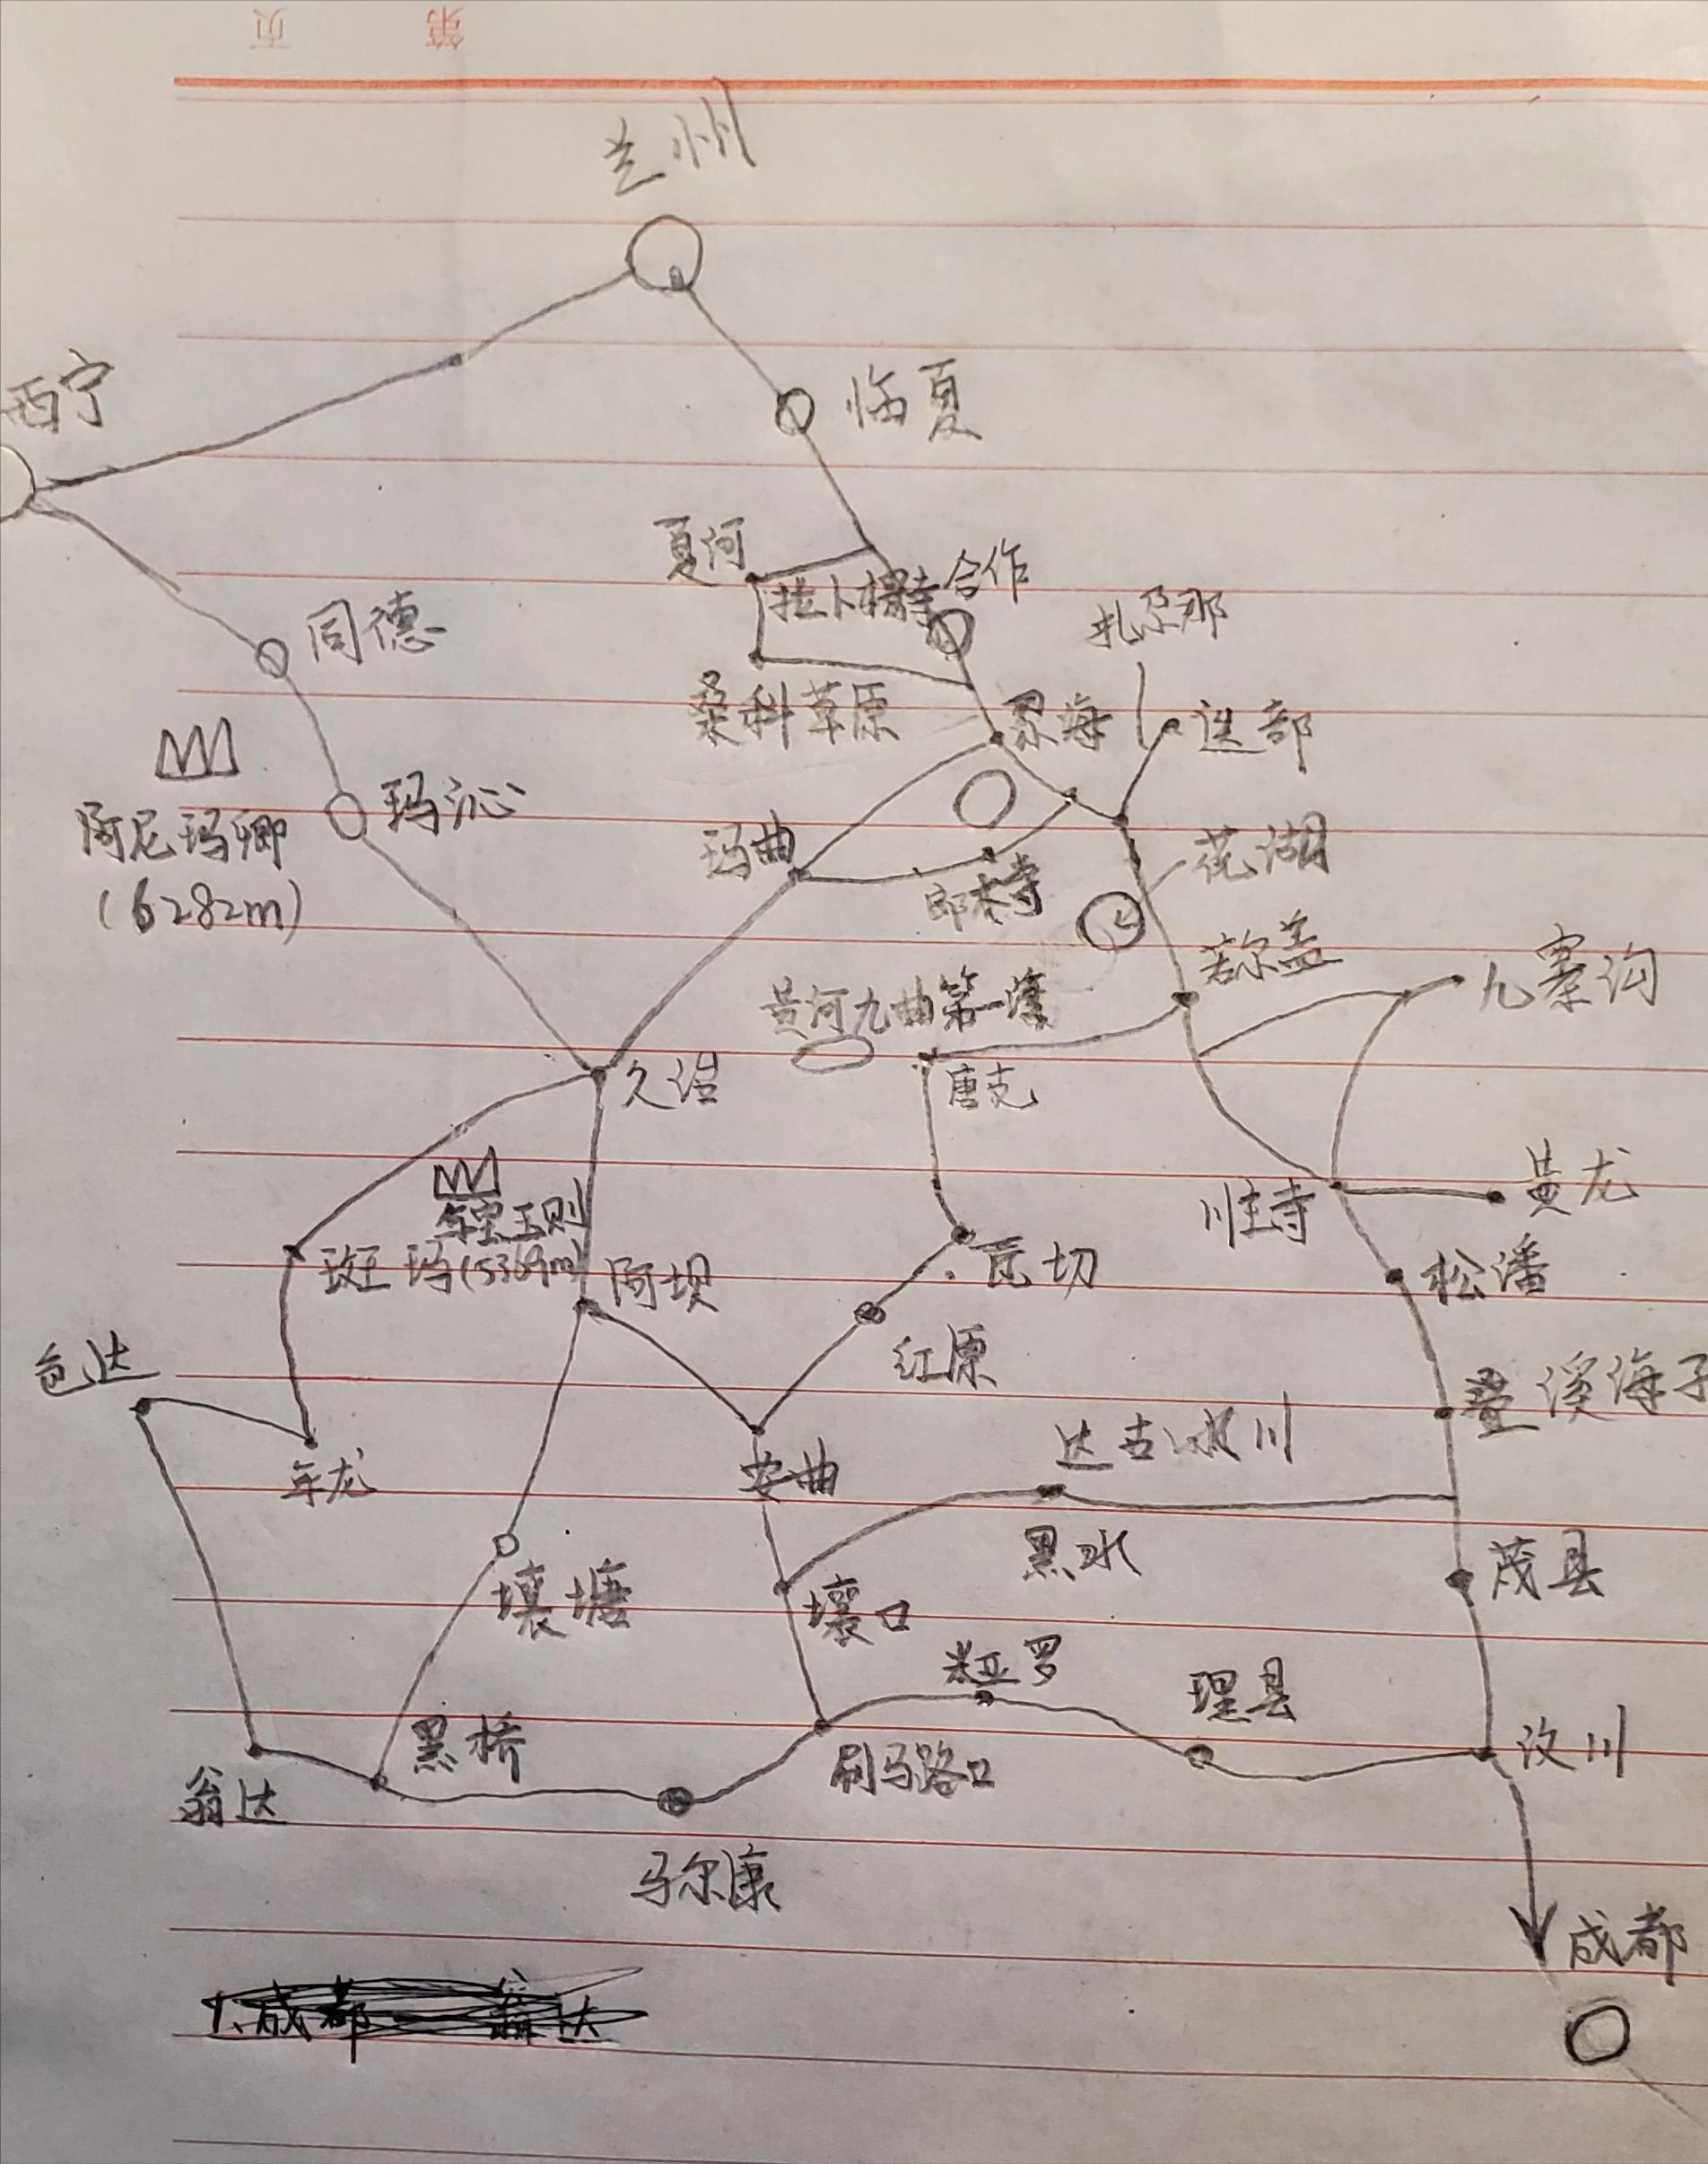 第 页
兰州
西宁
临夏
夏河
合作
拉卜楞寺
扎尕那
同德
桑科草原
尕海
迭部
玛沁
阿尼玛卿
(6282m)
玛曲
花湖
郎木寺
若尔盖
九寨沟
黄河九曲第一湾
唐克
久治
黄龙
川主寺
年宝玉则
(5369m)
班玛
阿坝
瓦切
松潘
红原
色达
叠溪海子
达古冰川
年龙
安曲
黑水
茂县
壤塘
壤口
米亚罗
理县
黑桥
汶川
刷马路口
翁达
马尔康
成都
1、成都 翁达